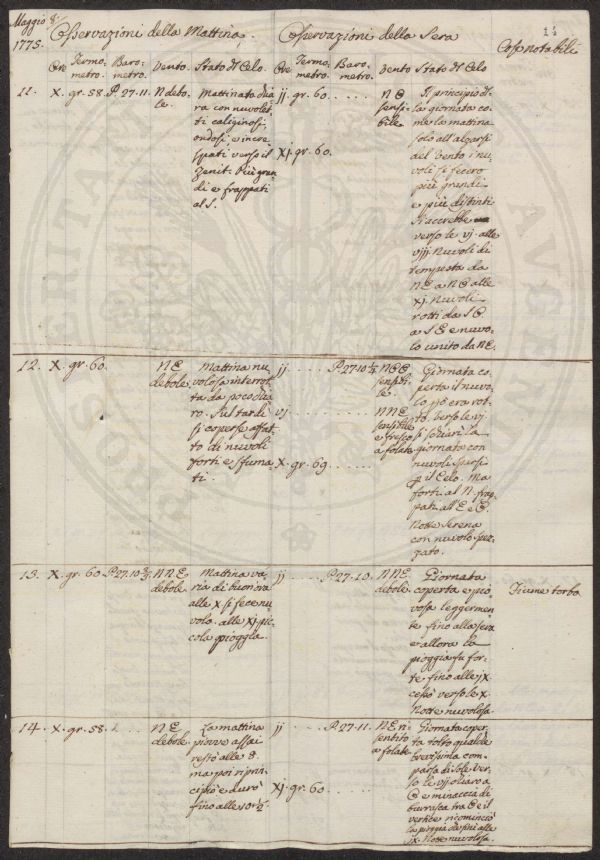 Maggio
1775.
Osservazioni della Mattina.
Osservazioni della Sera
Cose notabili
Ore
Termo-
metro.
Baro-
metro.
Vento.
Stato del Celo.
Ore
Termo-
metro.
Baro-
metro.
Vento
Stato del Celo
11.
X. gr. 58.
P. 27. 11.
N debo-
le.
Mattinata
ra con nuvolet-
ti caliginosi
ondosi e incre-
spati verso il
Zenit. Più gran-
di e frappati
al S.
jj. gr. 60.
Xj. gr. 60.
N O
sensi-
bile
Il principio del
la giornata co-
me la mattina
solo all'alzarsi
del vento i nu-
voli si fecero
più grandi
e più distinti
S'accrebbe
verso le vj. alle
vjjj. Nuvoli di
tempesta da
N E a N O alle
Xj. Nuvoli
rotti da S O
a S E e nuvo-
lo unito da NE.
12.
X. gr. 60.
N E
debole.
Mattina nu-
volosa interrot-
ta da poco
ro. Sul tardi
si coperse affat-
to di nuvoli
forti e sfuma-
ti.
jj . . . . .
vj . . . . .
X. gr. 69 . . . . .
N E E
sensibi-
le.
N N E
sensibile
e fresco
a folate
Giornata co-
perta il nuvo-
lo era rot-
to. Verso le vj.
si schiarì la
giornata con
nuvoli sparsi
il Celo. Ma
forti al N. frap-
pati all'E e O.
Notte Serena
con nuvolo
13.
X. gr. 60
N N E
debole.
Mattina va-
ria di buon'ora
alle X si fece nu-
volo. alle Xj. pic-
cola pioggia.
jj . . . . .
P. 27. 10.
N N E
debole
Giornata
coperta e pio-
vosa leggermen-
te fino alla sera
e allora la
pioggia fu for-
te fino alle jX.
cessò verso le X.
Notte nuvolosa.
Fiume torbo
14.
X. gr. 58.
N E
debole.
La mattina
piovve assai
restò alle 8.
ma poi riprin-
cipiò e durò
fino alle 10 1/2
jj . . . . .
P. 27. 11.
Xj. gr. 60.
N E ri-
sentito
a folate.
Giornata coper-
ta tolto qualche
brevissima com-
parsa di Sole. Ver-
so le vjj. chiaro a
O e minaccia di
burrasca tra O e il
vertice ricominciò
la pioggia alle
jX. Notte nuvolosa.